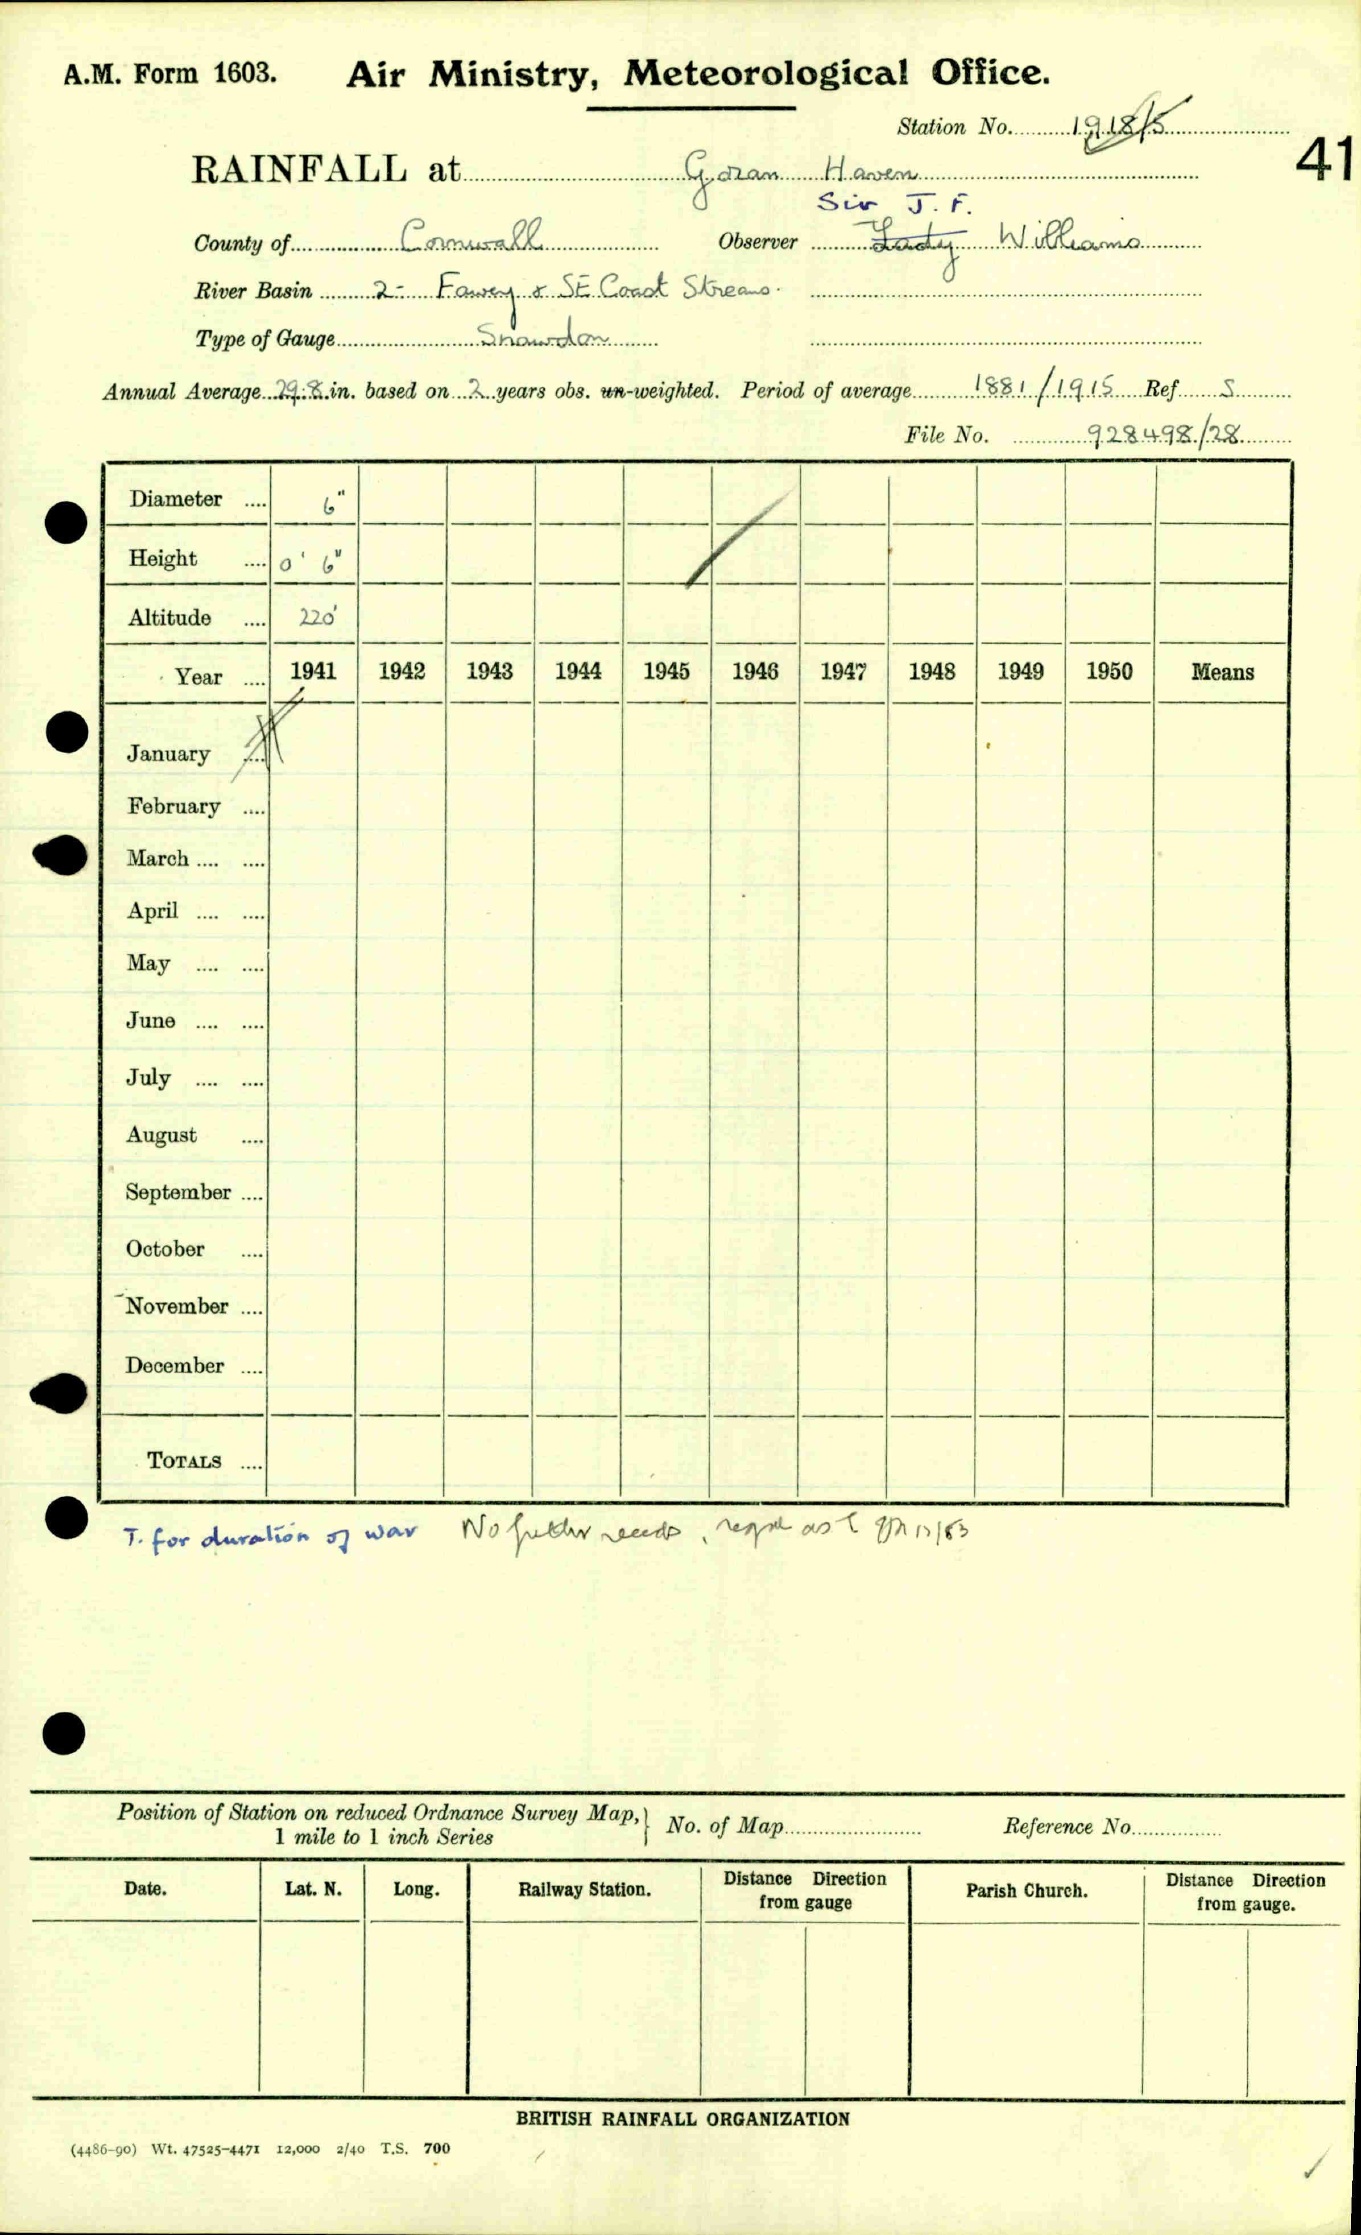 A.M. Form 1603. Air Ministry, Meteorological Office.
Station No. 1918/5
41
RAINFALL at Goran Haven
Sir J. F.
County of Cornwall Observer Lady Williams
River Basin 2- Fowey & SE Coast Streams.
Type of Gauge Snowdon
Annual Average 29.8 in. based on 2 years obs. un-weighted. Period of average 1881/1915 Ref S
File No. 928498/28
Diameter .... 6"
Height .... 0' 6"
Altitude .... 220'
Year .... 1941 1942 1943 1944 1945 1946 1947 1948 1949 1950 Means
January ....
February ....
March .... ....
April .... ....
May .... ....
June .... ....
July .... ....
August ....
September ....
October ....
November ....
December ....
TOTALS ....
T. for duration of war No further
Position of Station on reduced Ordnance Survey Map, } No. of Map Reference No.
1 mile to 1 inch Series
Date. Lat. N. Long. Railway Station. Distance Direction from gauge Parish Church. Distance Direction from gauge.
BRITISH RAINFALL ORGANIZATION
(4486-90) Wt. 47525-4471 12,000 2/40 T.S. 700